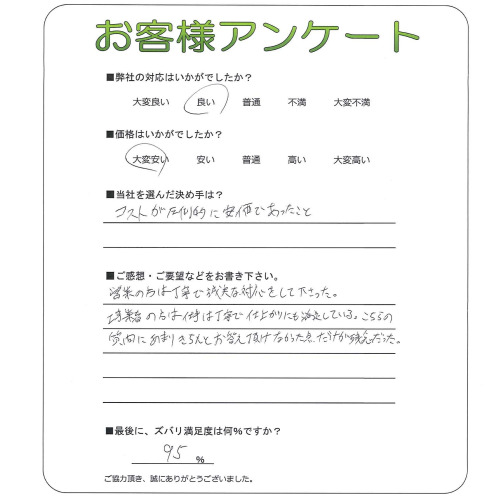 お客様アンケート
■弊社の対応はいかがでしたか?
大変良い 良い 普通 不満 大変不満
■価格はいかがでしたか?
大変安い 安い 普通 高い 大変高い
■当社を選んだ決め手は?
コストが圧倒的に安価であったこと
■ご感想・ご要望などをお書き下さい。
営業の方は丁寧で誠実な対応をして下さった。
作業者の方は仕事は丁寧で仕上がりにも満足している。こちらの
質問にあまりきちんとお答え頂けなかった点だけが残念だった。
■最後に、ズバリ満足度は何%ですか?
95 %
ご協力頂き、誠にありがとうございました。